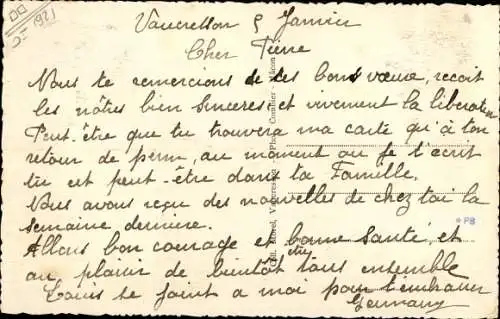 Vaucresson 5 Janvier
Cher Pierre
Nous te remercions de tes bons voeux, reçoit
les nôtres bien sincères et vivement la libération
Peut-être que tu trouvera ma carte qu'à ton
retour de perm, au moment ou je t'écrit
tu est peut-être dans ta Famille.
Nous avons reçu des nouvelles de chez toi la
semaine dernière.
Allons bon courage et bonne santé, et
au plaisir de bientôt être tous ensemble
Louis se joint a moi pour t'embrasser
Germaine